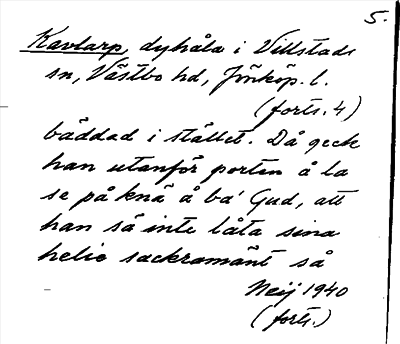 5.
Kavlarp, dyhåla i Villstads
sn, Västbo hd, Jönköp. l.
(forts. 4)
bäddad i stället. Då geck
han utanför porten å la
se på knä å ba' Gud, att
han så inte låta sina
helie sackramänt så
Neij 1940
(forts.)